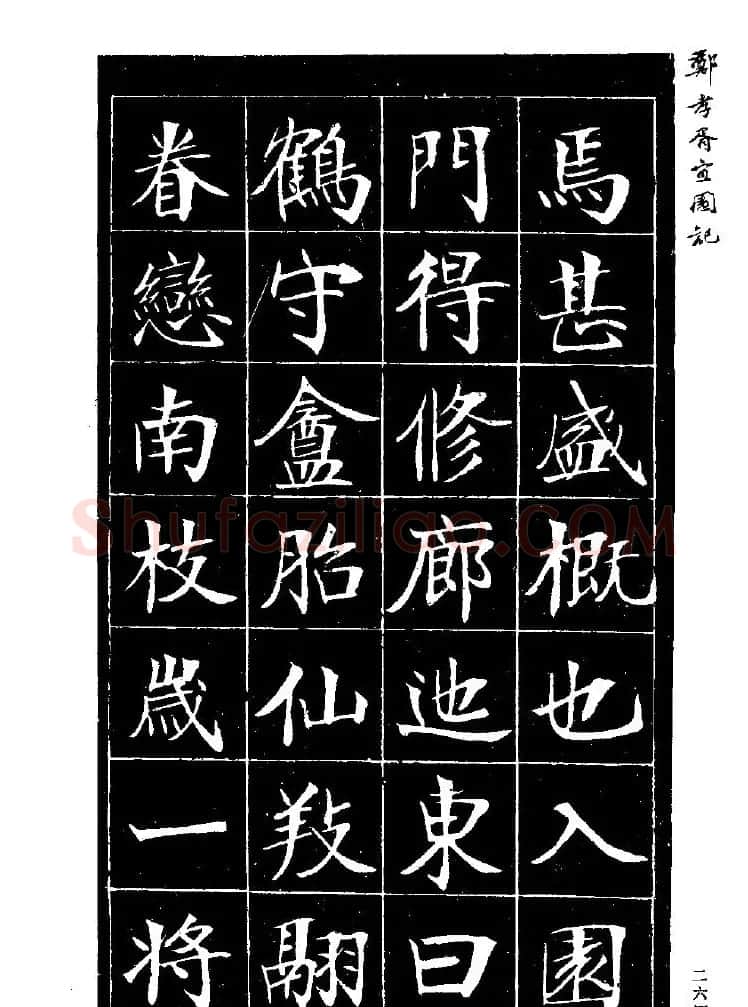 鄭孝胥宜園記
焉甚盛概也入園
門得修廊迆東曰
鶴守盦胎仙翮
眷戀南枝歲一將
二六
Shufaziliao.COM